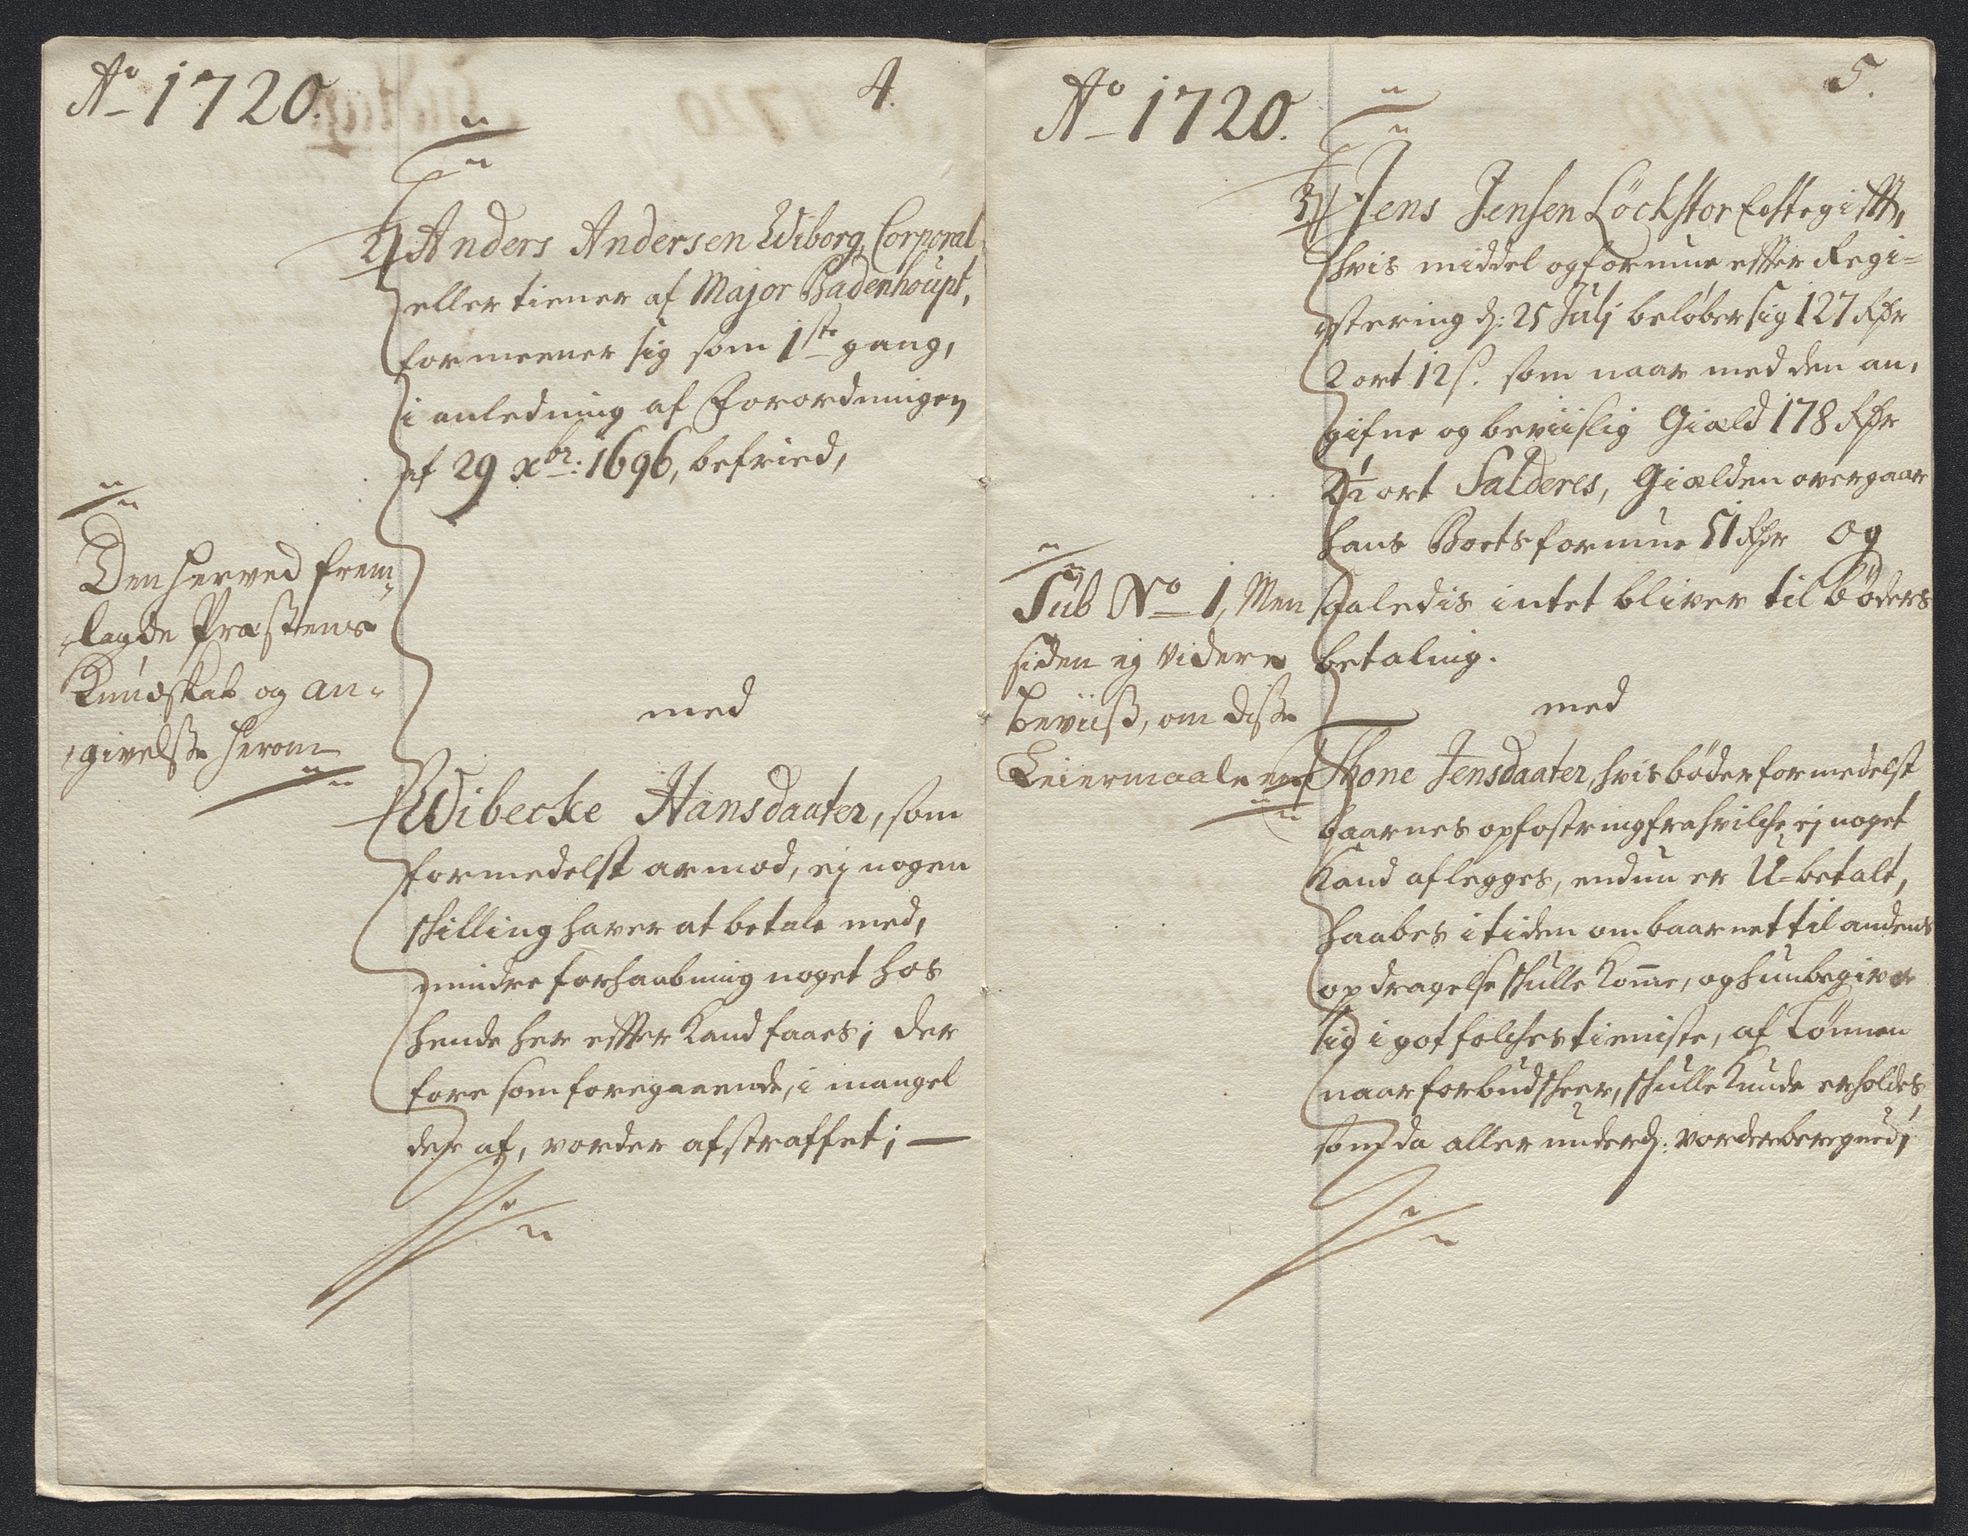 Ao 1720.
4.
2/ Anders Andersen Wiborg, Corporal
eller tiener af Major Badenhoupt,
formeener sig som 1ste gang,
i anledning af Forordningen
af 29 xbr: 1696, befried,
Den herved frem-
lagde Præstens
Kundskab og an-
givelse herom
med
Wibecke Hansdaater, som
formedelst armod, ej nogen
skilling haver at betale med,
mindre forhaabning noget hos
hende her effter kand faaes; der
fore som foregaaende, i mangel
der af, vorder afstraffet; —
Ao 1720.
5.
3/ Jens Jensen Löckstor Ectegifft,
hvis middel og formue effter Regi-
stering d: 25 Julj beløber sig 127 Rdr
2 ort 12 s. som naar med den an-
gifne og beviislig Giæld 178 Rdr
ort Salderes, Giælden overgaar
hans Boets formue 51 Rdr og
saaledis intet bliver til bøders
betaling.
Sub No 1, Men
siden ej videre
beviis, om disse
Leiermaale
med
Thone Jensdaater, hvis bøder formedelst
baarnes opfostring fra hvilche ej noget
kand aflegges, endnu er U-betalt,
haabes i tiden om baarnet til andens
opdragelse skulle komme, og hun begiver
sig i got folches tieniste, af Lønnen
naar forbud skeer, skulle kunde erholdes,
som da aller underd: vorder beregned;